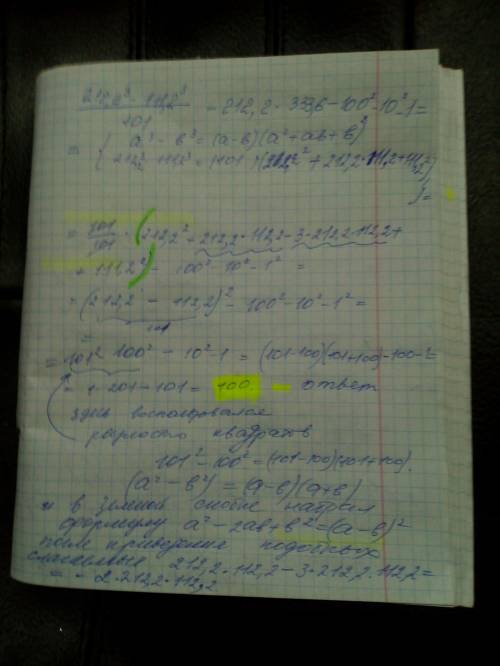 212,2³ - 111,2³ / 101 - 212,2 · 333,6 - 100² - 10² - 1 =
= { a³ - b³ = (a-b)(a²+ab+b²)
{ 212,2³ - 111,2³ = (101) · (212,2² + 212,2 · 111,2 + 111,2²)
} =
= 101/101 · (212,2² + 212,2 · 112,2 - 3 · 212,2 · 112,2 +
+ 111,2²) - 100² - 10² - 1² =
= (212,2 - 112,2)² - 100² - 10² - 1² =
101
= 101² - 100² - 10² - 1 = (101-100)(101+100) - 100 - 1² =
= 1 · 201 - 101 = 100. - ответ
здесь воспользовался
разностью квадратов
101² - 100² = (101-100)(101+100).
(a² - b²) = (a-b)(a+b)
и в зеленой скобке
формулу a² - 2ab + b² = (a-b)²
после приведения подобных
слагаемых 212,2 · 112,2 - 3 · 212,2 · 112,2 =
= - 2 · 212,2 · 112,2